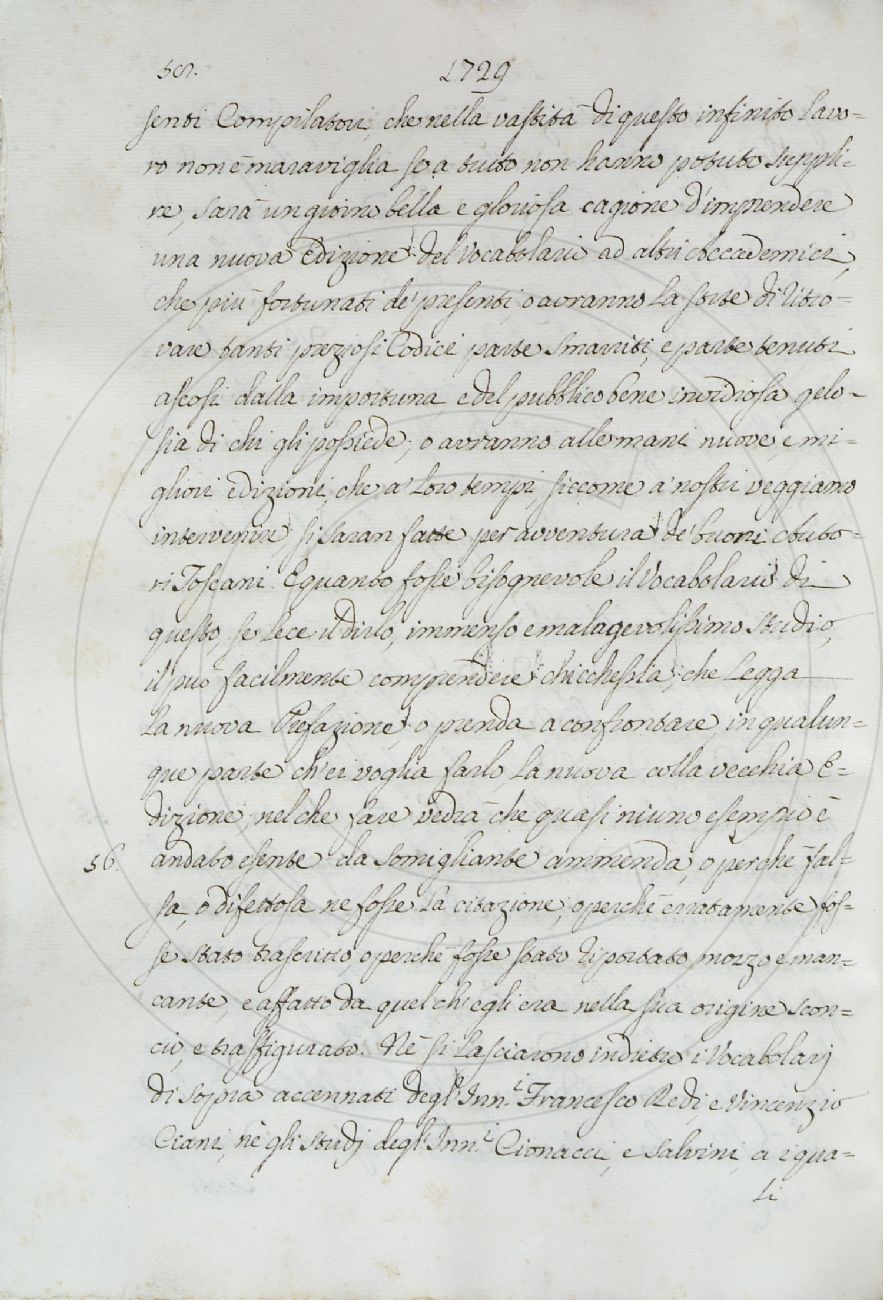 58. 1729
senti Compilatori, che nella vastità di questo infinito lavo=
ro non è maraviglia se a tutto non hanno potuto suppli=
re, sarà un giorno bella e gloriosa cagione d'imprendere
una nuova Edizione del Vocabolario ad altri Accademici,
che più fortunati de' presenti, o avranno la sorte di ritro=
vare tanti preziosi Codici parte smarriti, e parte tenuti
ascosi dalla importuna, e del pubblico bene invidiosa gelo=
sia di chi gli possiede; o avranno alle mani nuove, e mi=
gliori edizioni, che a' loro tempi, siccome a' nostri veggiamo
intervenire si saran fatte per avventura de' buoni Auto=
ri Toscani. E quanto fosse bisognevole il Vocabolario di
questo, se lece il dirlo, immenso e malagevolissimo studio,
il può facilmente comprendere chicchessia, che legga
la nuova Prefazione, o prenda a confrontare in qualun=
que parte ch'ei voglia farlo, la nuova colla vecchia E=
dizione; nel che fare vedrà che quasi niuno esempio è
56. andato esente da somigliante ammenda, o perchè fal=
sa, o difettosa ne fosse la citazione, o perchè erratamente fos=
se stato trascritto, o perchè fosse stato riportato mozzo e man=
cante, e affatto da quel ch'egli era nella sua origine scon=
cio, e traffigurato. Nè si lasciarono indietro i Vocabolarj
di sopra accennati degl'Inn.i Francesco Redi, e Vincenzio
Ciani, nè gli studj degl'Inn.i Cionacci, e Salvini, a i qua=
li